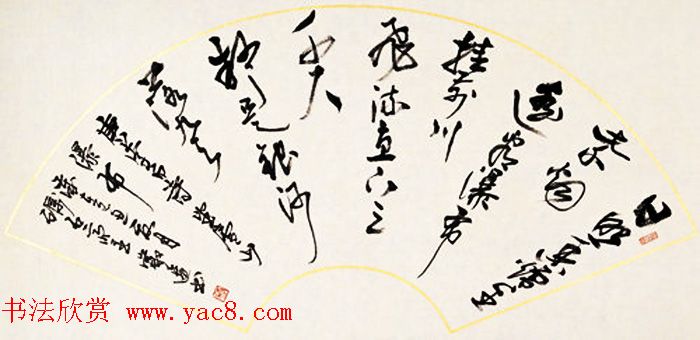 日照香炉生
紫烟
遥看瀑布
挂前川
飛流直下三
千尺
疑是银河
落九天
唐李白诗望庐山
瀑布
书法欣赏 www.yac8.com